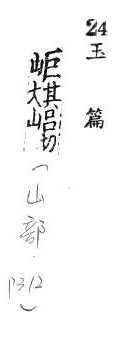 24
玉篇
岠 其呂切
大山
(山部.
P312)